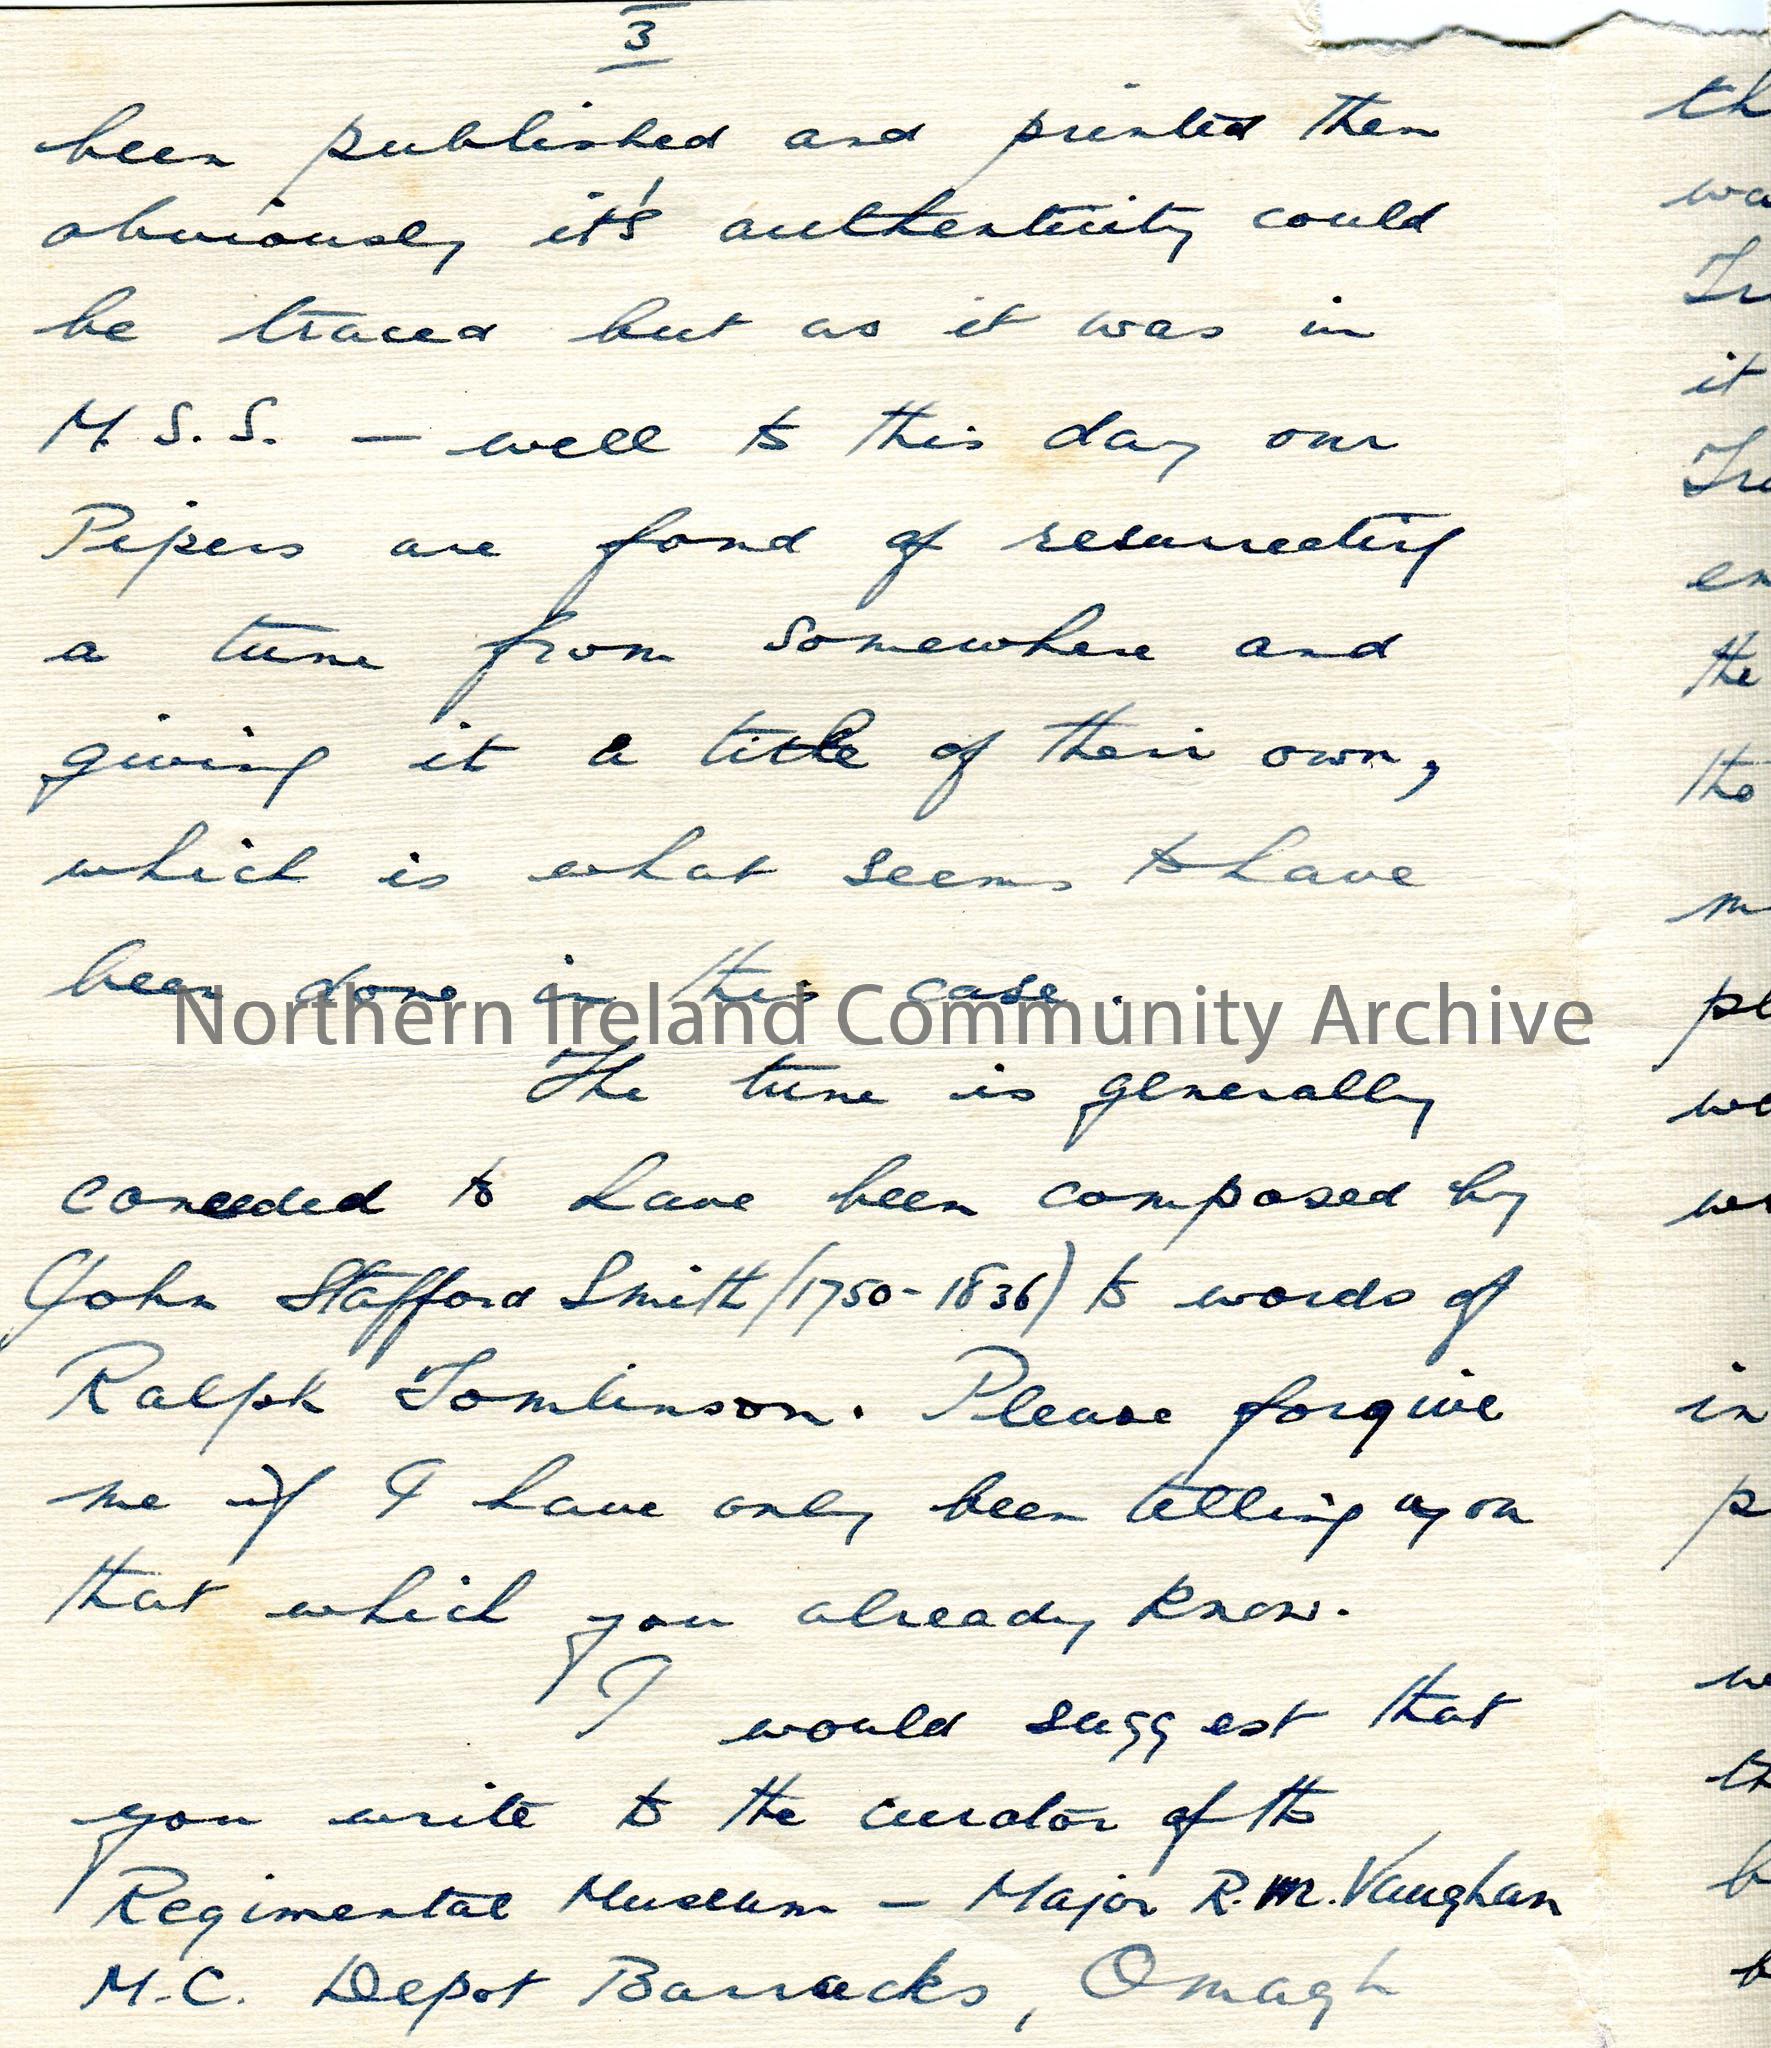 3
been published and printed then
obviously it's authenticity could
be traced but as it was in
M.S.S. — well to this day our
Pipers are fond of resurrecting
a tune from somewhere and
giving it a title of their own,
which is what seems to have
been done in this case.
Northern Ireland Community Archive
The tune is generally
conceded to have been composed by
John Stafford Smith (1750-1836) to words of
Ralph Tomlinson. Please forgive
me if I have only been telling you
that which you already know.
I would suggest that
you write to the curator of the
Regimental Museum — Major R.M. Vaughan
M.C. Depot Barracks, Omagh